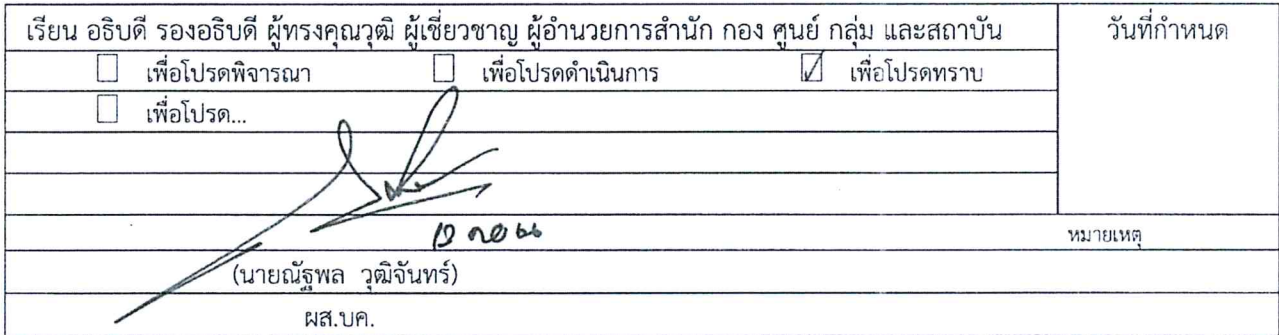 เรียน อธิบดี รองอธิบดี ผู้ทรงคุณวุฒิ ผู้เชี่ยวชาญ ผู้อำนวยการสำนัก กอง ศูนย์ กลุ่ม และสถาบัน วันที่กำหนด
เพื่อโปรดพิจารณา เพื่อโปรดดำเนินการ เพื่อโปรดทราบ
เพื่อโปรด...
หมายเหตุ
(นายณัฐพล วุฒิจันทร์)
ผส.บค.